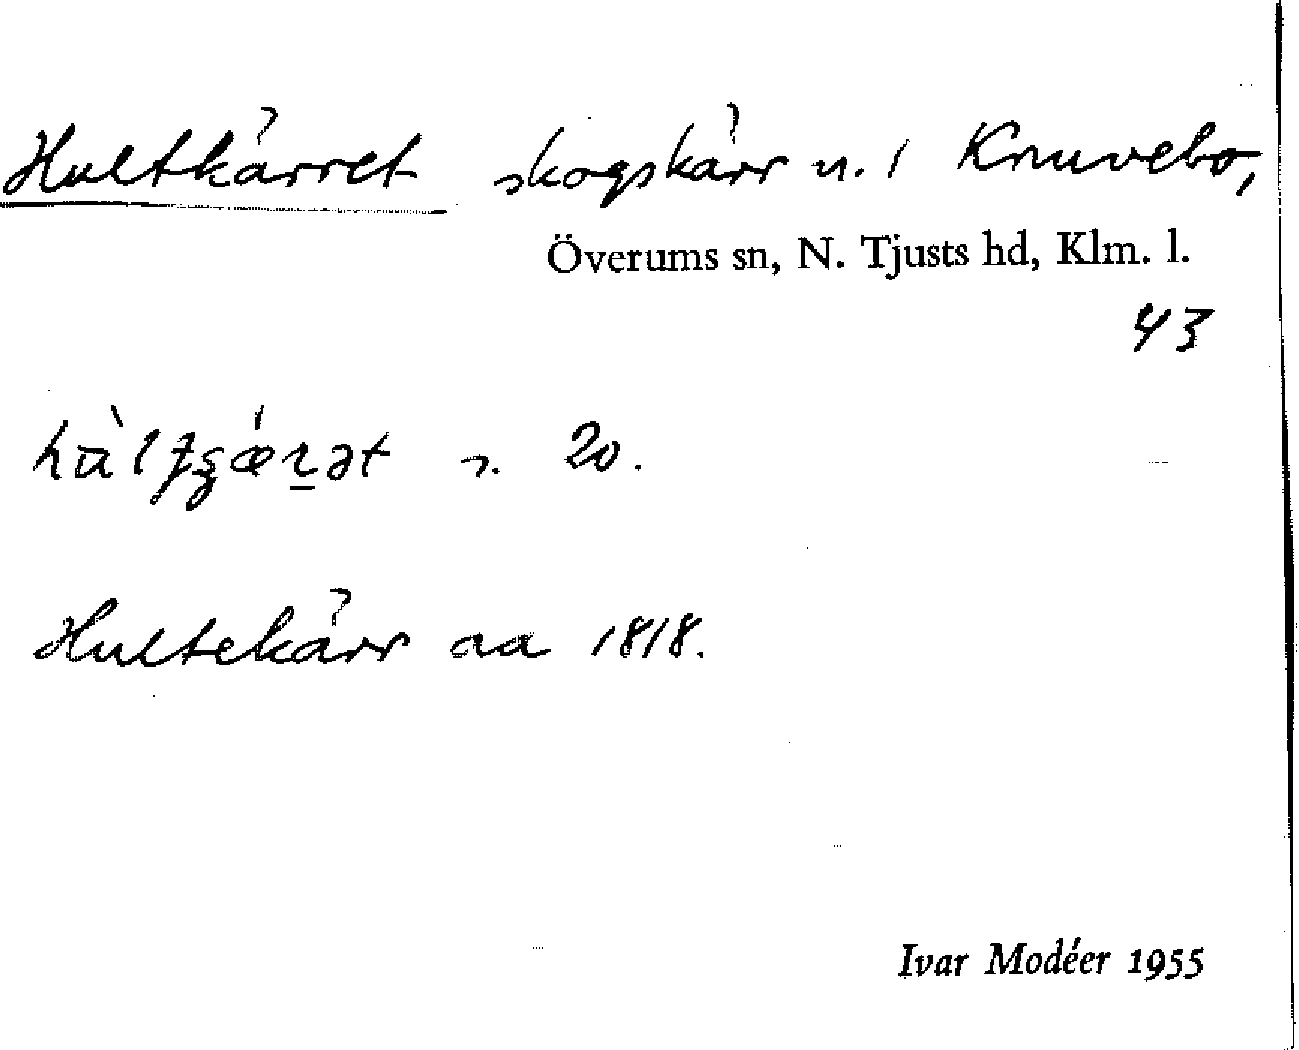 Hultkärret skogskärr n. i Knuvebo,
Överums sn, N. Tjusts hd, Klm. l.
43
n. 20.
Hultekärr aa 1818.
Ivar Modéer 1955